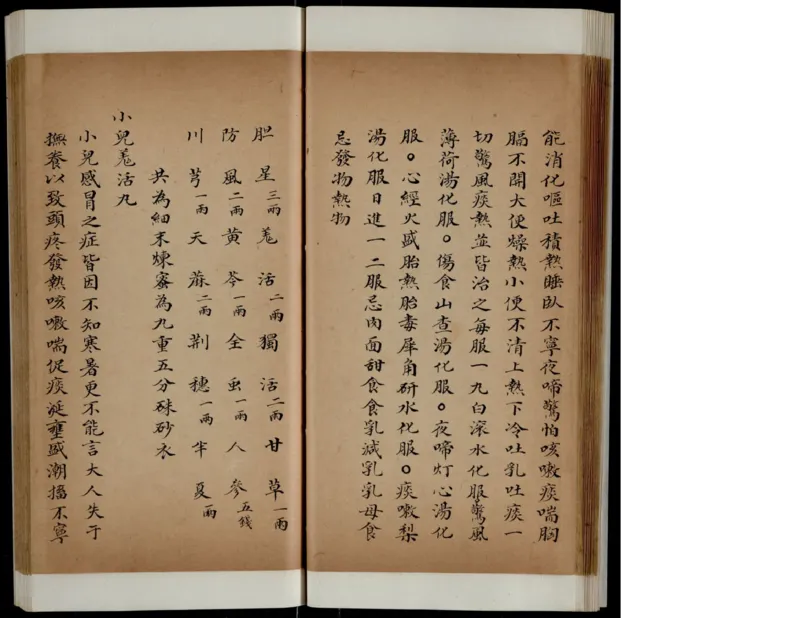 能消化嘔吐積熱睡臥不寧夜啼驚怕咳嗽痰喘胸
膈不開大便燥熱小便不清上熱下冷吐乳吐痰一
切驚風痰熱並皆治之每服一九白滚水化服驚風
薄荷湯化服○傷食山查湯化服○夜啼灯心湯化
服○心經火盛胎熱胎毒犀角研水化服○痰嗽梨
湯化服日進一二服忌肉面甜食食乳減乳乳母食
忌發物熱物
胆星三兩羗活二兩獨活二兩甘草一兩
防風二兩黄芩一兩全虫一兩人參五錢
川芎一兩天蔴二兩荆穗一兩半夏一兩
共為細末煉蜜為九重五分硃砂衣
小兒羗活九
小兒感冒之症皆因不知寒暑更不能言大人失于
撫養以致頭疼發熱咳嗽喘促痰涎壅盛潮搐不寧